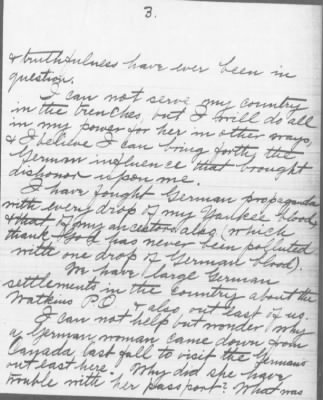 3.
& truthfulness have ever been in
question.
I can not serve my country
in the trenches, but I will do all
in my power for her in other ways,
& I believe I can bring forth the
German influence that brought
dishonor upon me.
I have fought German propaganda
with every drop of my Yankee blood,
& that of my ancestors also (which
thank God has never been polluted
with one drop of German blood).
We have large German
settlements in the country about the
Watkins P.O. & also, out east of us.
I can not help but wonder why
a German woman came down from
Canada last fall to visit the Germans
out east here. Why did she have
trouble with her passport? What was